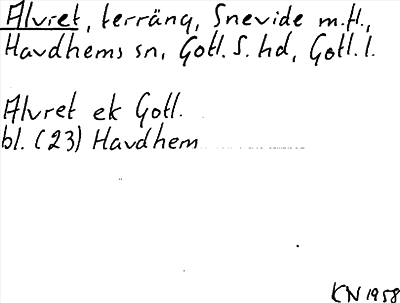 Alvret, terräng, Snevide m.fl.,
Havdhems sn, Gotl. S. hd, Gotl. l.
Alvret ek Gotl.
bl. (23) Havdhem
KN 1958